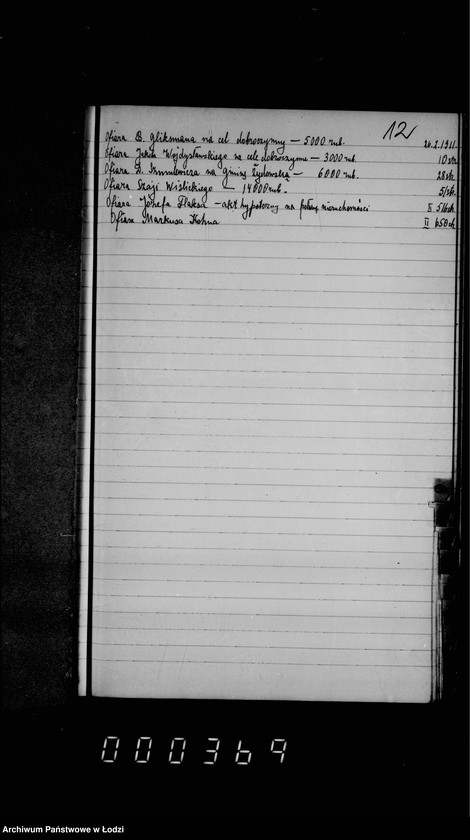 12
Ofiara B. Gliksmana na cel dobroczynny — 5000 rub. 26.I.1911.
Ofiara Jakóba Wojdysławskiego na cele dobroczynne — 3000 rub. 10 str.
Ofiara na gminę żydowską — 6000 rub. 28 str.
Ofiara Szaji Wiślickiego — 14000 rub. 51 str.
Ofiara Józefa Flaksa — akt hypoteczny na połowę nieruchomości II 516 str.
Ofiara Markusa Kohna II 650 str.
000369
Archiwum Państwowe w Łodzi